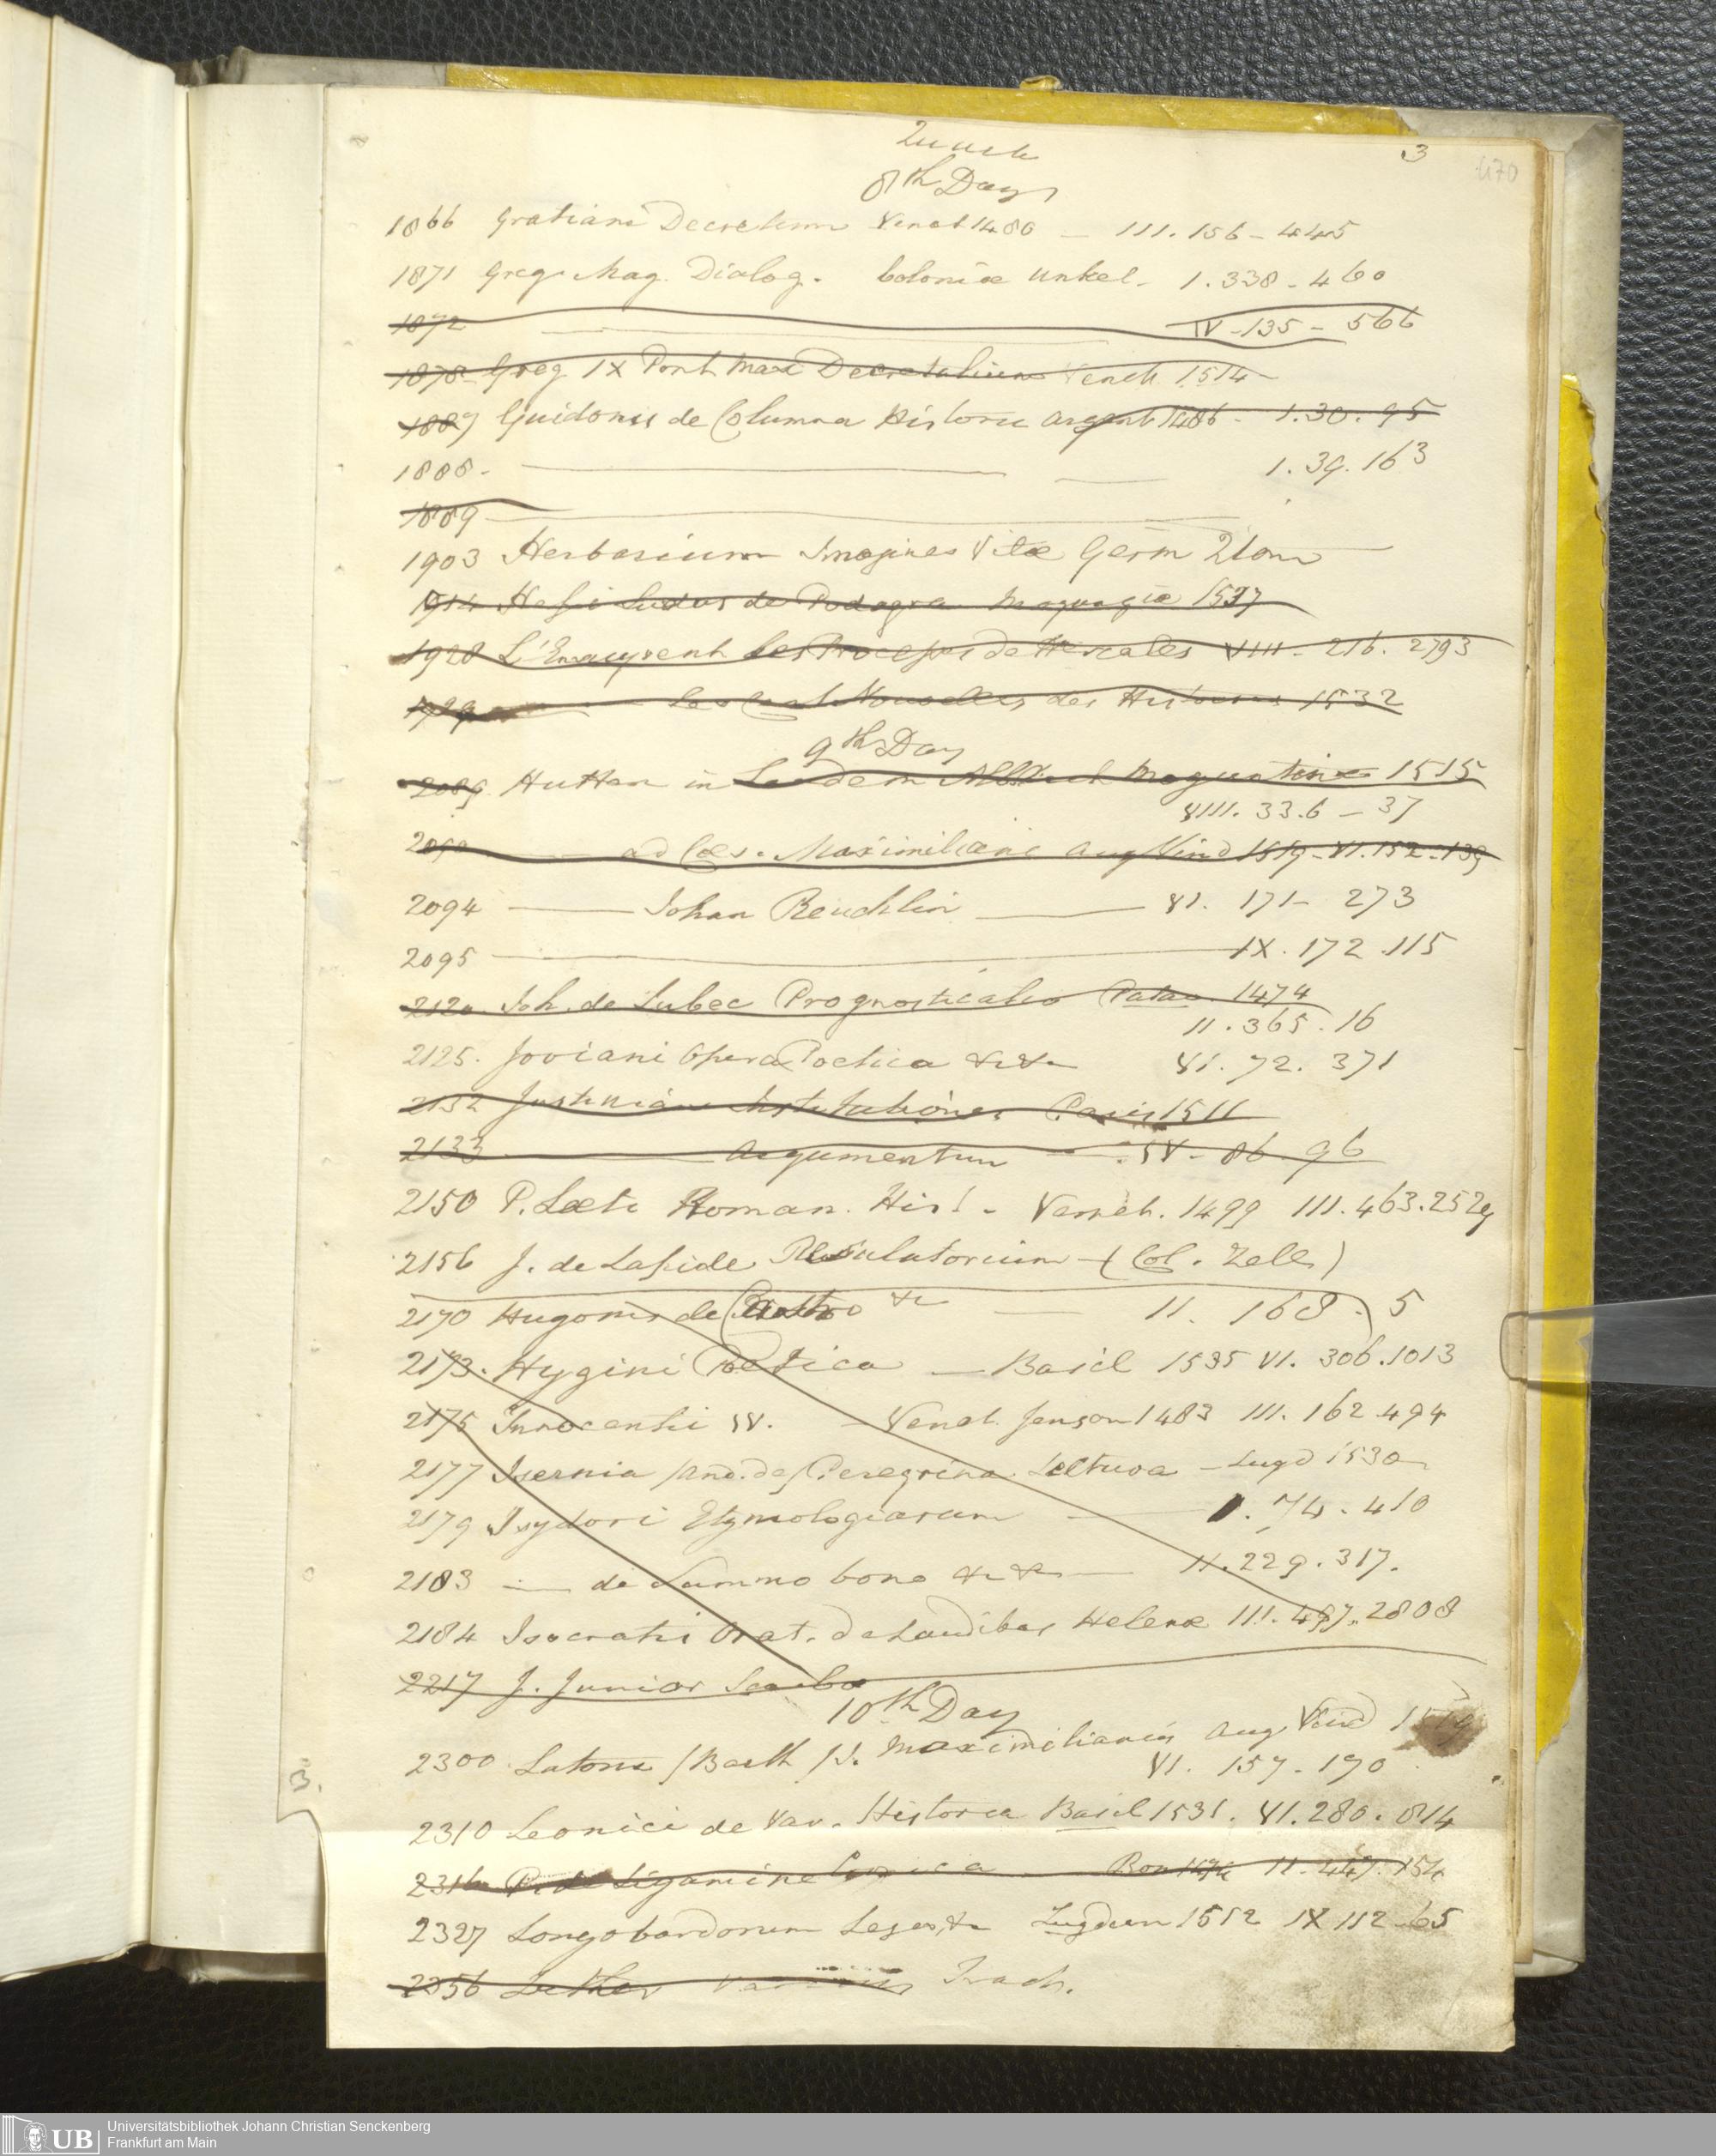 3
470
8th Day
1866 Gratiani Decretum Venet 1480 — III. 156 - 445
1871 Greg. Mag. Dialog. Coloniæ Unkel - 1. 338 - 460
1872 ——— IV - 135 - 566
1878 Greg IX Pont Max Decretalium Venet. 1514 —
1887 Guidonis de Columna Historie Argent 1486 - 1. 30. 95
1888 - ——— —— 1. 39. 163
1889 ———
1903 Herbarium Imagines Vitæ Germ
1914 Hesi Ludus de Podagra Moguntiæ 1537
1928 Les Proesses de Hercules VIII - 216. 2793
Les Cent Nouvelles des Histoires 1532
9th Day
2089 Hutten in Laudem Moguntinæ 1515
VIII. 33. 6 — 37
2090 —— ad Cæs. Maximiliani Aug Vind 1519 - VI. 152 - 139
2094 —— Johan Reuchlin —— VI. 171 - 273
2095 ——— IX. 172. 115
2120 Joh. de Lubec Prognosticatio Patav. 1474
II. 365. 16
2125. Joviani Opera Poetica &c &c VI. 72. 371
2132 Justiniani Institutiones Paris 1511
2133 —— Argumentum —— IV - 86 96
2150 P. Læti Roman. Hist - Venet. 1499 III. 463. 2529
2156 J. de Lapide Resolutorium — (Col. Zell)
2170 Hugonis de Castro &c — II. 168. 5
2173. Hygini Poetica — Basil 1535 VI. 306. 1013
2175 Innocentii IV. — Venet. Jenson 1483 III. 162 494
2177 Isernia (And. de) Peregrina Lectura — Lugd 1530
2179 Isydori Etymologiarum —— 1. 74. 410
2183 —— de Summo bono &c &c — II. 229. 317.
2184 Isocratis Orat. de Laudibus Helenæ III. 497. 2808
2217 J. Junior Scala
10th Day
2300 Latomi (Barth) Maximilianis Aug Vind
VI. 157. 170
3.
2310 Leonici de Var. Historia Basil 1531. VI. 280. 814
2316 P. de Ligamine 1474 II. 447. 154
2327 Longobardorum Leges, &c Lugdun 1512 IX 112 - 65
2356 Luther Various Trach.
UB Universitätsbibliothek Johann Christian Senckenberg
Frankfurt am Main